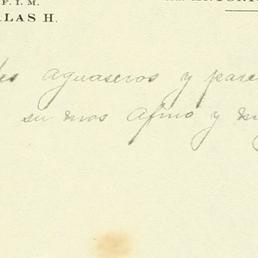 F. I. M.
LAS H.
es aguaseros y pare
su mos Afmo y